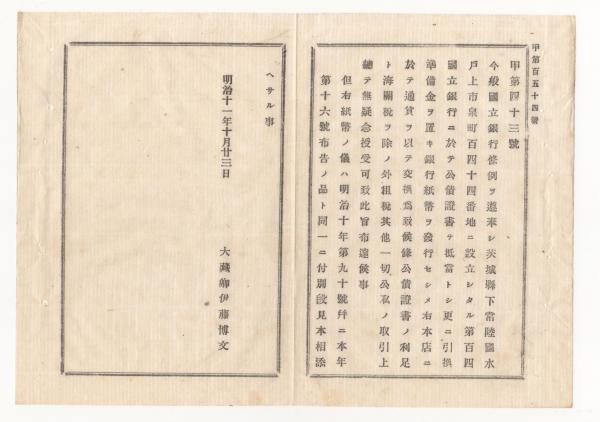 甲第百五十四號
甲第四十三號
今般國立銀行條例ヲ遵奉シ茨城縣下常陸國水
戸上市泉町百四十四番地ニ設立シタル第百四
國立銀行ニ於テ公債證書ヲ抵當トシ更ニ引換
準備金ヲ置キ銀行紙幣ヲ發行セシメ右本店ニ
於テ通貨ヲ以テ交換爲致候條公債證書ノ利足
ト海關稅ヲ除ノ外租稅其他一切公私ノ取引上
總テ無疑念授受可致此旨布達候事
但右紙幣ノ儀ハ明治十年第九十號幷ニ本年
第十六號布告ノ品ト同一ニ付別段見本相添
ヘサル事
明治十一年十月廿三日
大藏卿伊藤博文